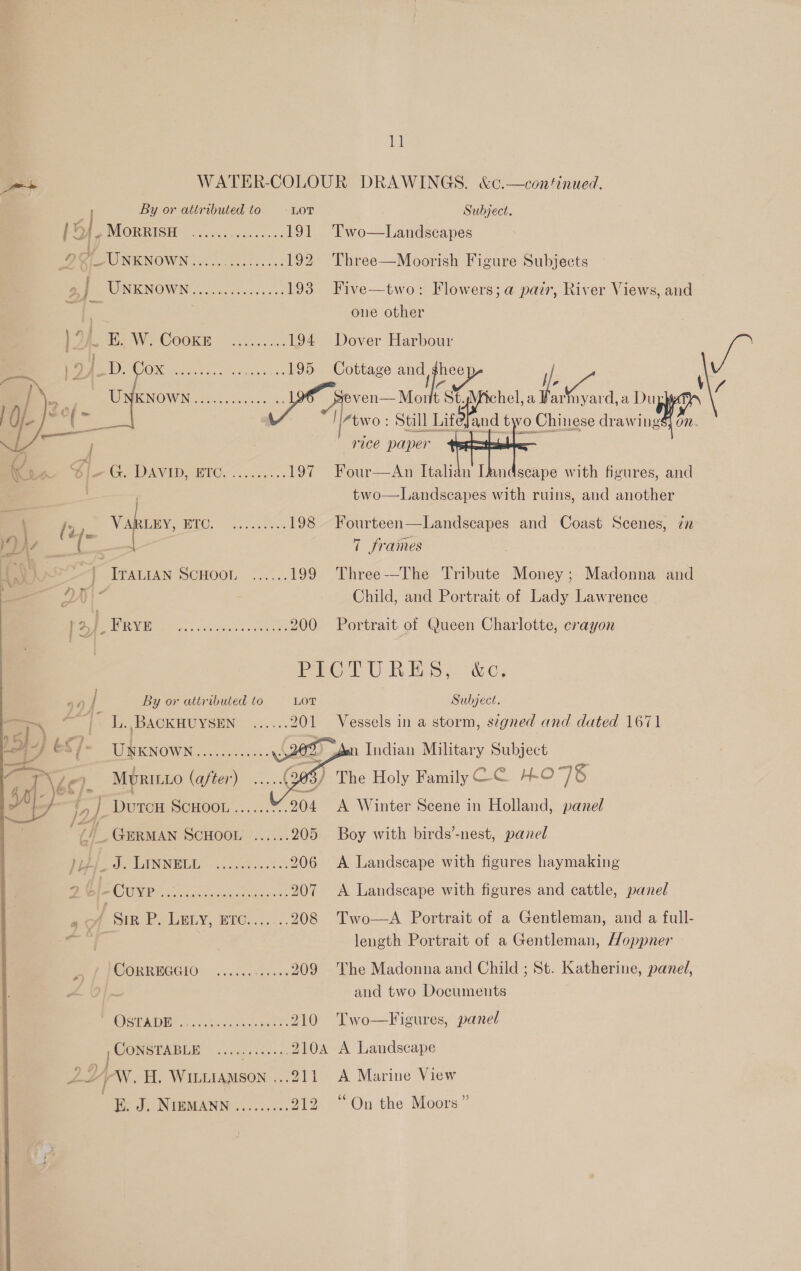 11
WATER-COLOUR DRAWINGS. &c.—continued.
By or attributed to LOT Subject.
15/- MORRISH ............... 191 Two—Landscapes
UNKNOWN ............... 192 Three—Moorish Figure Subjects
UNKNOWN ............... 193 Five—two: Flowers; a pair, River Views, and
one other
12/- E. W. COOKE ......... 194 Dover Harbour
12/- D. COX ............... 195 Cottage and sheep
UNKNOWN ............... 196 Seven—Mont St. Michel, a Farmyard, a Dup
two: Still Life and two Chinese drawings, on
rice paper
G. DAVID, ETC. ......... 197 Four—An Italian Landscape with figures, and
two—Landscapes with ruins, and another
VARLEY, ETC. ......... 198 Fourteen—Landscapes and Coast Scenes, in
7 frames
ITALIAN SCHOOL ...... 199 Three—The Tribute Money; Madonna and
Child, and Portrait of Lady Lawrence
12/- FRYE ............... 200 Portrait of Queen Charlotte, crayon
PICTURES, &c.
By or attributed to LOT Subject.
L. BACKHUYSEN ...... 201 Vessels in a storm, signed and dated 1671
UNKNOWN ............... 202 An Indian Military Subject
MURILLO (after) ...... 203 The Holy Family CC HO78
DUTCH SCHOOL ...... 204 A Winter Scene in Holland, panel
GERMAN SCHOOL ...... 205 Boy with birds'-nest, panel
J. LINNELL ............ 206 A Landscape with figures haymaking
CUYP .................. 207 A Landscape with figures and cattle, panel
SIR P. LELY, ETC. ...... 208 Two—A Portrait of a Gentleman, and a full-
length Portrait of a Gentleman, Hoppner
CORREGGIO ............ 209 The Madonna and Child; St. Katherine, panel,
and two Documents
OSTADE ............... 210 Two—Figures, panel
CONSTABLE ............ 210A A Landscape
22/- W. H. WILLIAMSON ... 211 A Marine View
E. J. NIEMANN ......... 212 "On the Moors"